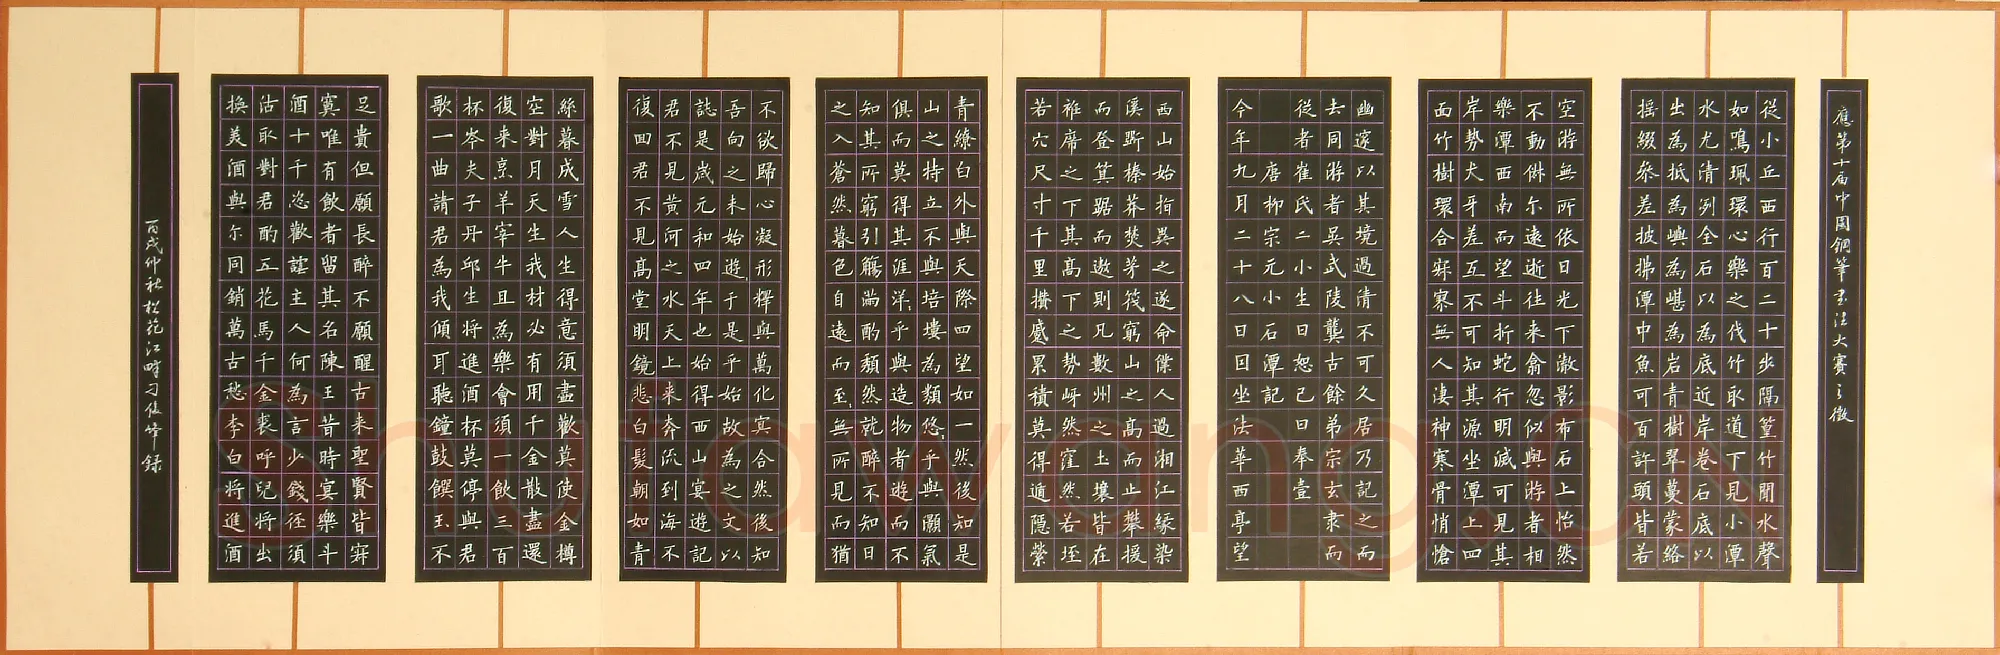 應第十届中国钢筆書法大賽之徵
從小丘西行百二十步隔篁竹聞水聲
如鳴珮環心樂之伐竹取道下見小潭
水尤清冽全石以為底近岸卷石底以
出為坻為嶼為嵁為岩青樹翠蔓蒙絡
搖綴參差披拂潭中魚可百許頭皆若
空游無所依日光下澈影布石上怡然
不動俶尔遠逝往来翕忽似與游者相
樂潭西南而望斗折蛇行明滅可見其
岸勢犬牙差互不可知其源坐潭上四
面竹樹環合寂寥無人淒神寒骨悄愴
幽邃以其境過清不可久居乃記之而
去同游者吳武陵龔古餘弟宗玄隶而
從者崔氏二小生曰恕己曰奉壹
唐柳宗元小石潭記
今年九月二十八日因坐法華西亭望
西山始指異之遂命僕人過湘江緣染
溪斫榛莽焚茅筏窮山之高而止攀援
而登箕踞而遨則凡數州之土壤皆在
袵席之下其高下之勢岈然窪然若垤
若穴尺寸千里攢蹙累積莫得遁隱縈
青繚白外與天際四望如一然後知是
山之特立不與培塿為類悠乎與顥氣
俱而莫得其涯洋乎與造物者遊而不
知其所窮引觴滿酌頹然就醉不知日
之入蒼然暮色自遠而至無所見而猶
不欲歸心凝形釋與萬化冥合然後知
吾向之未始遊于是乎始故為之文以
誌是歲元和四年也始得西山宴遊記
君不見黄河之水天上来奔流到海不
復回君不見高堂明鏡悲白髮朝如青
絲暮成雪人生得意須盡歡莫使金樽
空對月天生我材必有用千金散盡還
復来烹羊宰牛且為樂會須一飲三百
杯岑夫子丹邱生將進酒杯莫停與君
歌一曲請君為我傾耳聽鐘鼓饌玉不
足貴但願長醉不願醒古来聖賢皆寂
寞唯有飲者留其名陳王昔時宴樂斗
酒十千恣歡謔主人何為言少錢徑須
沽取對君酌五花馬千金裘呼兒将出
換美酒與尔同銷萬古愁李白將進酒
丙戌仲秋松花江畔刁俊峰録
shufawang.cn